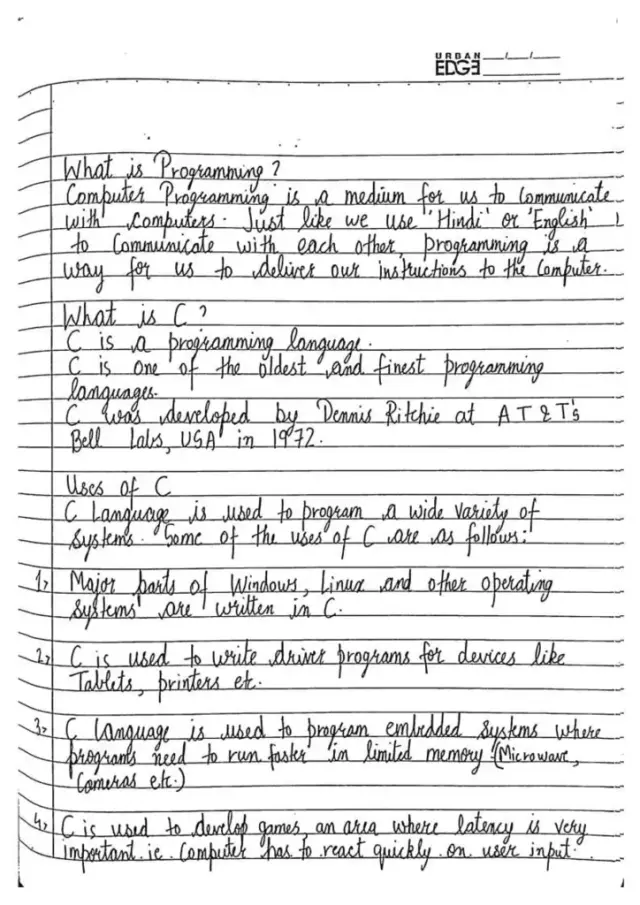 URBAN
EDGE
What is Programming?
Computer Programming is a medium for us to Communicate
with computers. Just like we use 'Hindi' or 'English'
to Communicate with each other, programming is a
way for us to deliver our instructions to the Computer.
What is C?
C is a programming language.
C is one of the oldest and finest programming
languages.
C was developed by Dennis Ritchie at AT&T's
Bell Labs, USA in 1972.
Uses of C
C Language is used to program a wide variety of
systems. Some of the uses of C are as follows:
1> Major parts of Windows, Linux and other operating
systems are written in C.
2> C is used to write driver programs for devices like
Tablets, printers etc.
3> C language is used to program embedded systems where
programs need to run faster in limited memory (Microwave,
Cameras etc.)
4> C is used to develop games, an area where latency is very
important ie. Computer has to react quickly on user input.